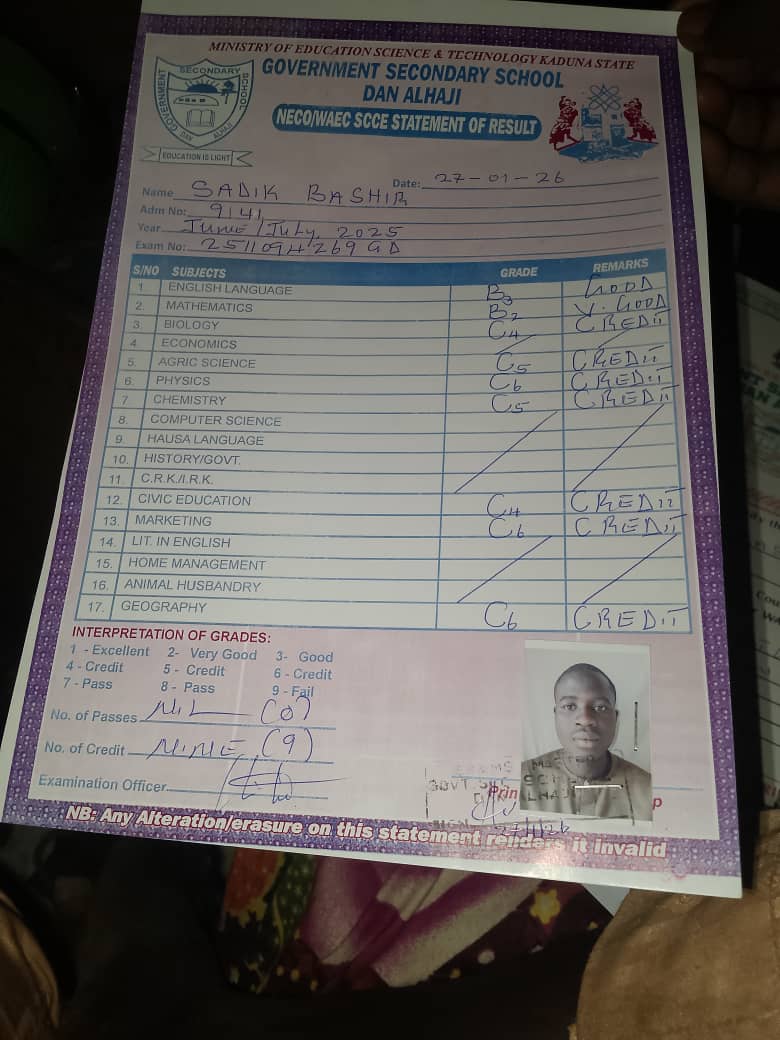 MINISTRY OF EDUCATION SCIENCE & TECHNOLOGY KADUNA STATE
GOVERNMENT SECONDARY SCHOOL
DAN ALHAJI
NECO/WAEC SCCE STATEMENT OF RESULT
GOVERNMENT SECONDARY SCHOOL
DAN ALHAJI
EDUCATION IS LIGHT
Date: 27-01-26
Name SADIK BASHIR
Adm No: 9141
Year June/July, 2025
Exam No: 2511094269GD
S/NO SUBJECTS GRADE REMARKS
1. ENGLISH LANGUAGE B3 GOOD
2. MATHEMATICS B2 V. GOOD
3. BIOLOGY C4 CREDIT
4. ECONOMICS
5. AGRIC SCIENCE C5 CREDIT
6. PHYSICS C6 CREDIT
7. CHEMISTRY C5 CREDIT
8. COMPUTER SCIENCE
9. HAUSA LANGUAGE
10. HISTORY/GOVT.
11. C.R.K./I.R.K.
12. CIVIC EDUCATION C4 CREDIT
13. MARKETING C6 CREDIT
14. LIT. IN ENGLISH
15. HOME MANAGEMENT
16. ANIMAL HUSBANDRY
17. GEOGRAPHY C6 CREDIT
INTERPRETATION OF GRADES:
1 - Excellent 2- Very Good 3- Good
4 - Credit 5 - Credit 6 - Credit
7 - Pass 8 - Pass 9 - Fail
No. of Passes NIL (0)
No. of Credit NINE (9)
Examination Officer
EXAMS MASTER
GOVT. SEC SCH
DAN ALHAJI
Prin p
SIGN 27/1/26
NB: Any Alteration/erasure on this statement renders it invalid